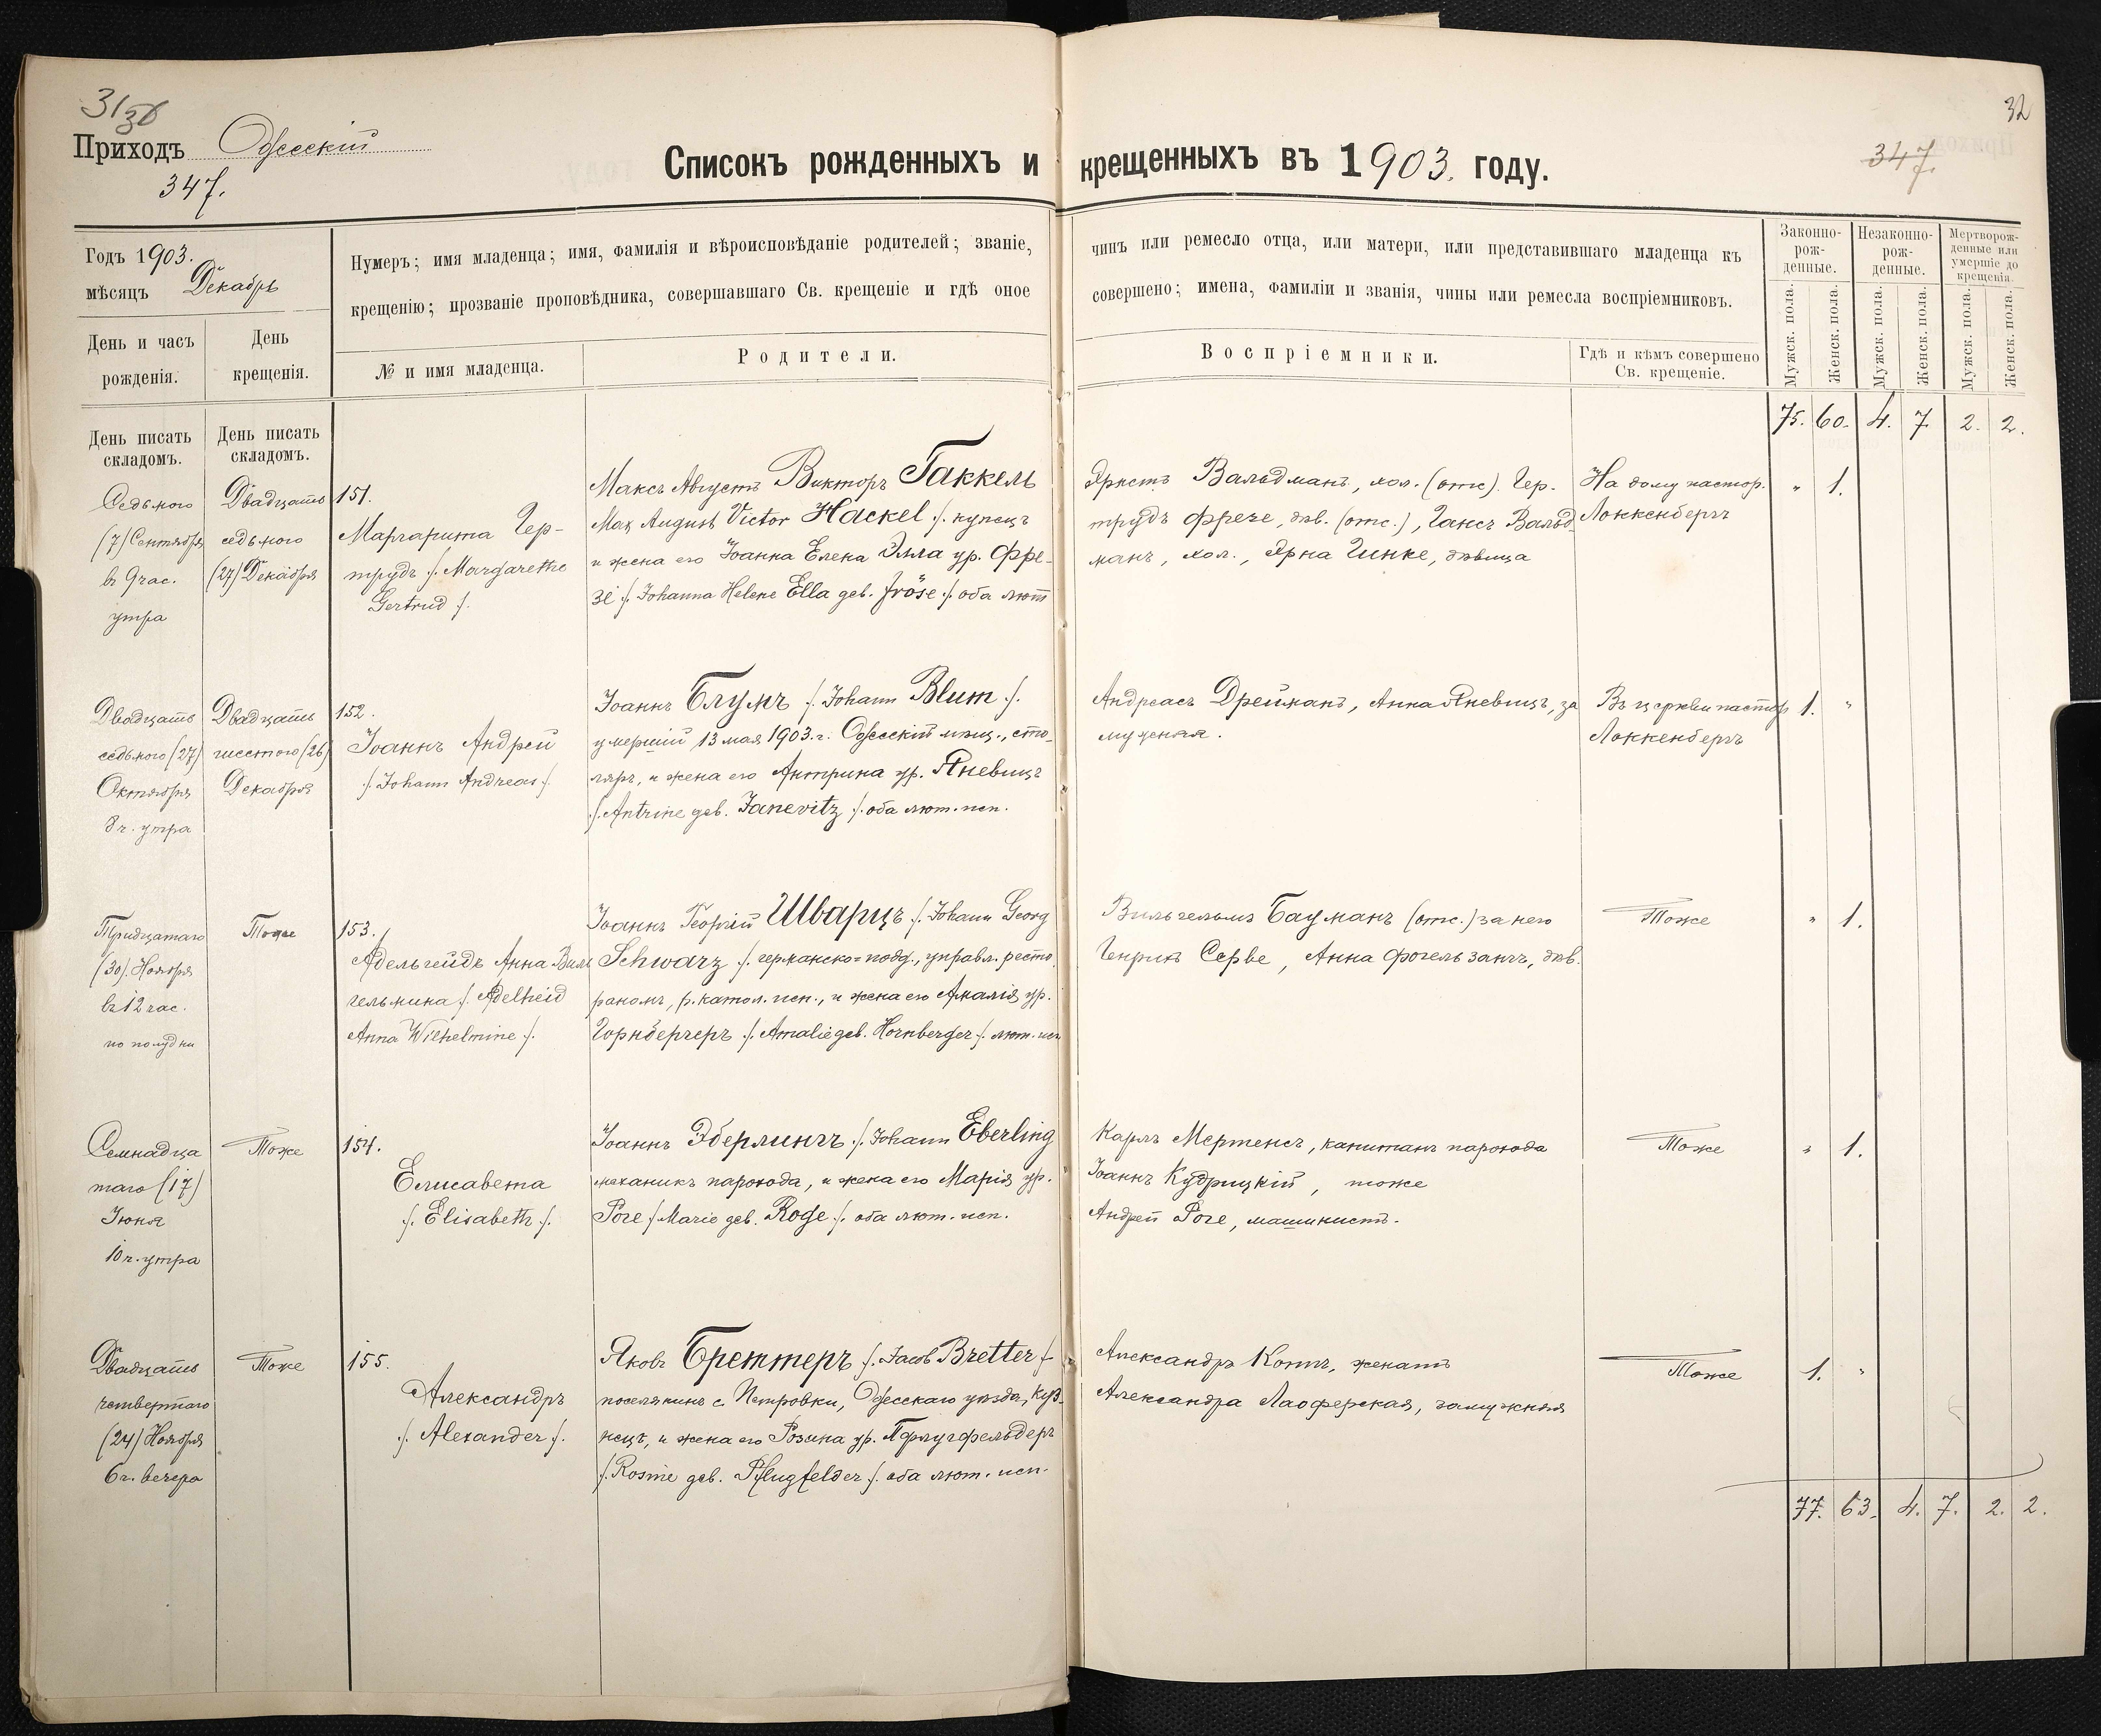 31
30
Приходъ Одесскій
347.
Списокъ рожденныхъ и крещенныхъ въ 1903. году.
32
347.
Годъ 1903.
мѣсяцъ Декабрь
День и часъ
рожденія.
День
крещенія.
Нумеръ; имя младенца; имя, фамилія и вѣроисповѣданіе родителей; званіе,
крещенію; прозваніе проповѣдника, совершавшаго Св. крещеніе и гдѣ оное
№ и имя младенца.
Родители.
чинъ или ремесло отца, или матери, или представившаго младенца къ
совершено; имена, фамиліи и званія, чины или ремесла воспріемниковъ.
Воспріемники.
Гдѣ и кѣмъ совершено
Св. крещеніе.
Законно-
рож-
денные.
Незаконно-
рож-
денные.
Мертворож-
денные или
умершіе до
крещенія.
Мужск. пола.
Женск. пола.
Мужск. пола.
Женск. пола.
Мужск. пола.
Женск. пола.
75. 60. 4. 7. 2. 2.
День писать
складомъ.
День писать
складомъ.
Седьмого
(7) Сентября
въ 9 час.
утра
Двадцать
седьмого
(27) Декабря
151.
Маргарита Гер-
трудъ /. Margarethe
Gertrud /.
Максъ Августъ Викторъ Гаккель
Max August Victor Hackel /. купецъ
и жена его Іоанна Елена Элла ур. Фре-
зе /. Johanna Helene Ella geb. Fröse /. оба лют
Эрнстъ Вальдманъ, хол. (отс). Гер-
трудъ Фрезе, дѣв. (отс.), Гансъ Вальд-
манъ, хол., Эрна Гинке, дѣвица
На дому пастор.
Локкенбергъ
" 1.
Двадцать
седьмого (27)
Октября
8 ч. утра
Двадцать
шестого (26)
Декабря
152.
Іоаннъ Андрей
/. Johann Andreas /.
Іоаннъ Блумъ /. Johann Blum /.
умершій 13 мая 1903. г. Одесскій мѣщ., сто-
ляръ, и жена его Антрина ур. Яневицъ
/. Antrine geb. Janevitz /. оба лют. исп.
Андреасъ Дрейманъ, Анна Яневицъ, за
мужняя.
Въ церкви пастор
Локкенбергъ
1. "
Тридцатаго
(30). Ноября
въ 12 час.
по полудни
Тоже
153.
Адельгейдъ Анна Виль
гельмина /. Adelheid
Anna Wilhelmine /.
Іоаннъ Георгій Шварцъ /. Johann Georg
Schwarz /. германско-подд., управл. ресто
раномъ, р. катол. исп., и жена его Амалія ур.
Горнбергеръ /. Amalie geb. Hornberger /. лют. исп
Вильгельмъ Бауманъ (отс.) за него
Генрихъ Серве, Анна Фогельзангъ, дѣв.
Тоже
" 1.
Семнадца
таго (17)
Іюня
10 ч. утра
Тоже
154.
Елисавета
/. Elisabeth /.
Іоаннъ Эберлингъ /. Johann Eberling
механикъ парохода, и жена его Марія ур.
Роге /. Marie geb. Roge /. оба лют. исп.
Карлъ Мертенсъ, капитанъ парохода
Іоаннъ Кудрицкій, тоже
Андрей Роге, машинистъ.
Тоже
" 1.
Двадцать
четвертаго
(24) Ноября
6 ч. вечера
Тоже
155.
Александръ
/. Alexander /.
Яковъ Бреттеръ /. Jacob Bretter /.
поселянинъ с. Петровки, Одесскаго уѣзда, куз-
нецъ, и жена его Розина ур. Пфлугфельдеръ
/. Rosine geb. Pflugfelder /. оба лют. исп.
Александръ Коттъ, женатъ
Александра Лаоферская, замужняя
Тоже
1. "
77. 63. 4. 7. 2. 2.